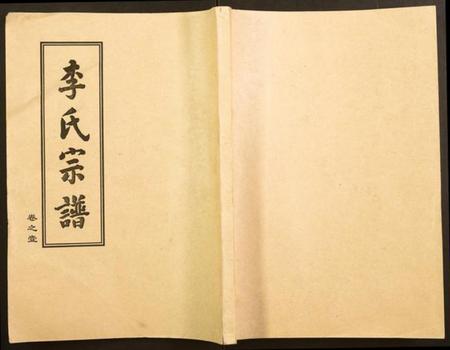 李氏宗譜
卷之壹